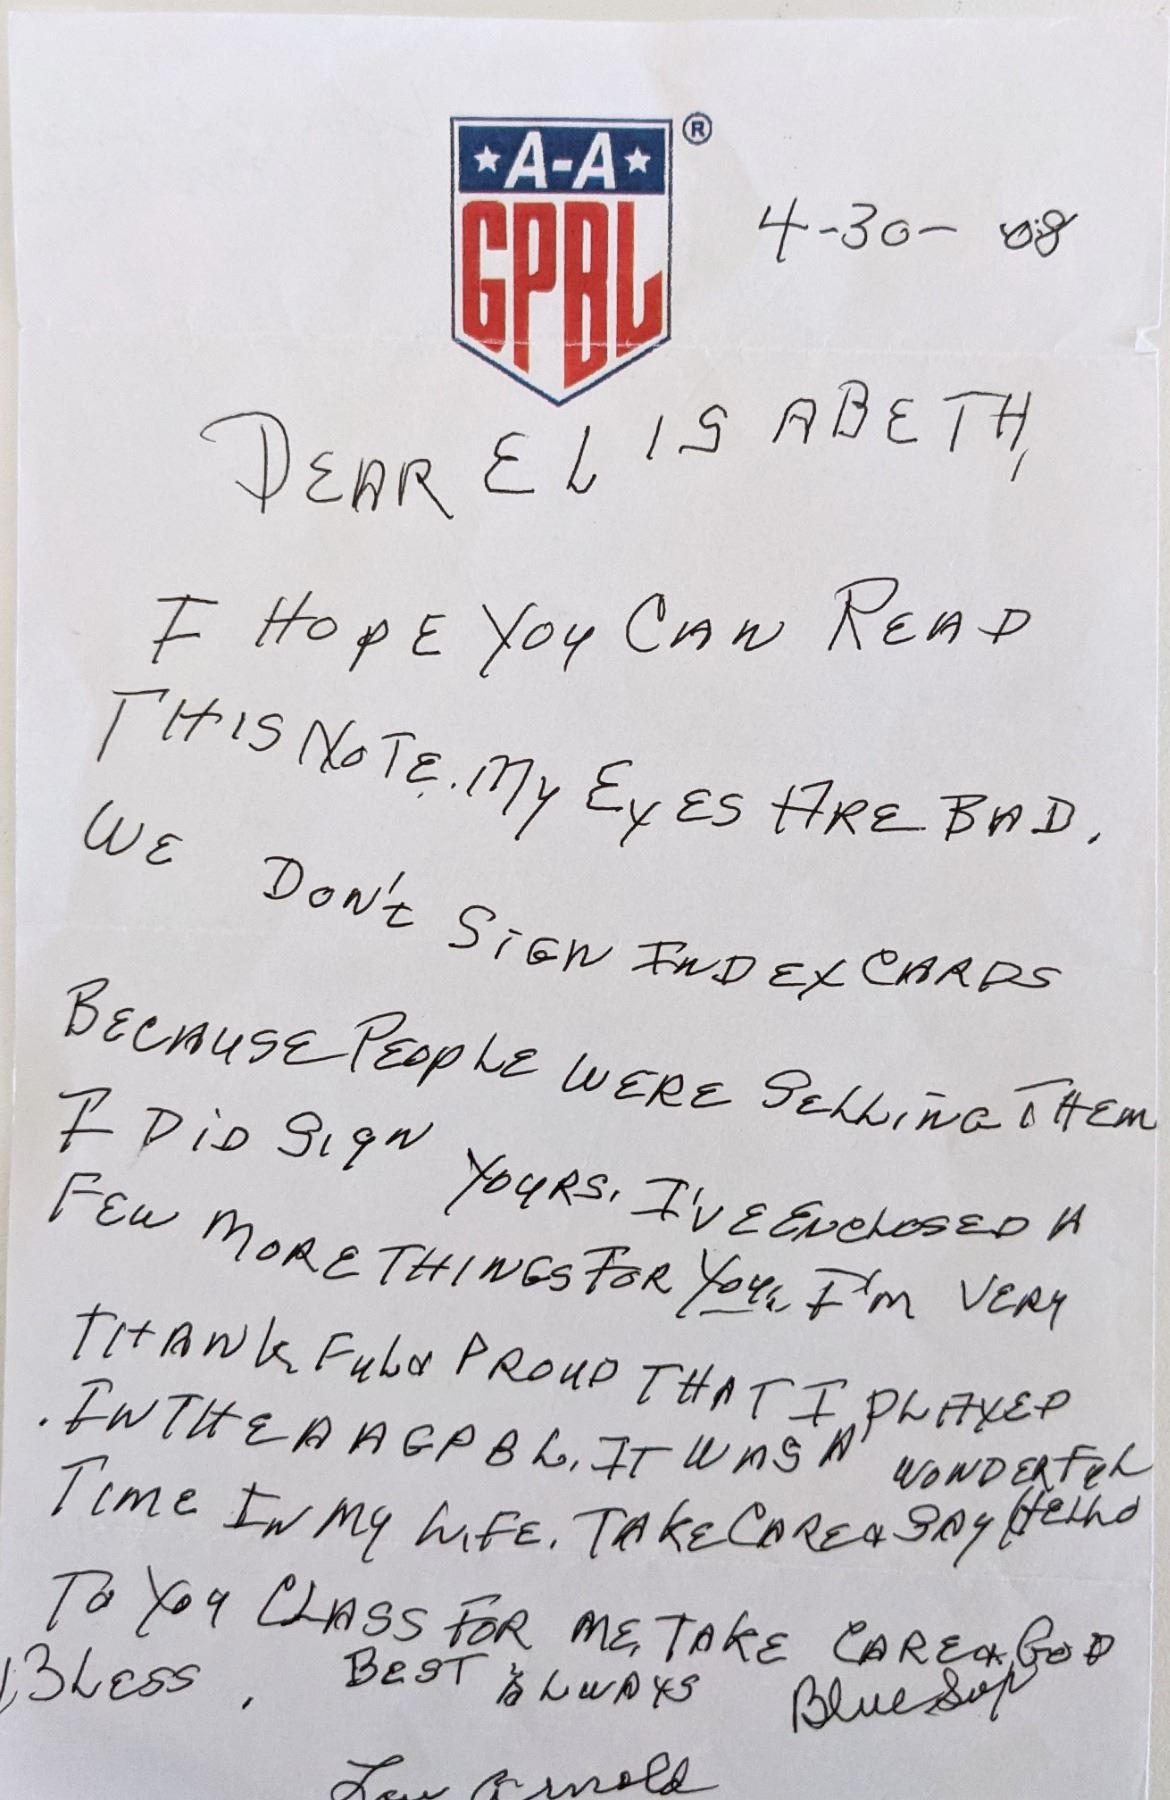 A-A
®
GPBL
4-30-08
DEAR ELISABETH,
I HOPE YOU CAN READ
THIS NOTE. MY EYES ARE BAD.
WE DON'T SIGN INDEX CARDS
BECAUSE PEOPLE WERE SELLING THEM
I DID SIGN YOURS. I'VE ENCLOSED A
FEW MORE THINGS FOR YOU. I'M VERY
THANKFUL & PROUD THAT I PLAYED
IN THE AAGPBL. IT WAS A WONDERFUL
TIME IN MY LIFE. TAKE CARE & SAY HELLO
TO YOU CLASS FOR ME, TAKE CARE & GOD
BLESS. BEST ALWAYS Blue Sox
Lou Arnold